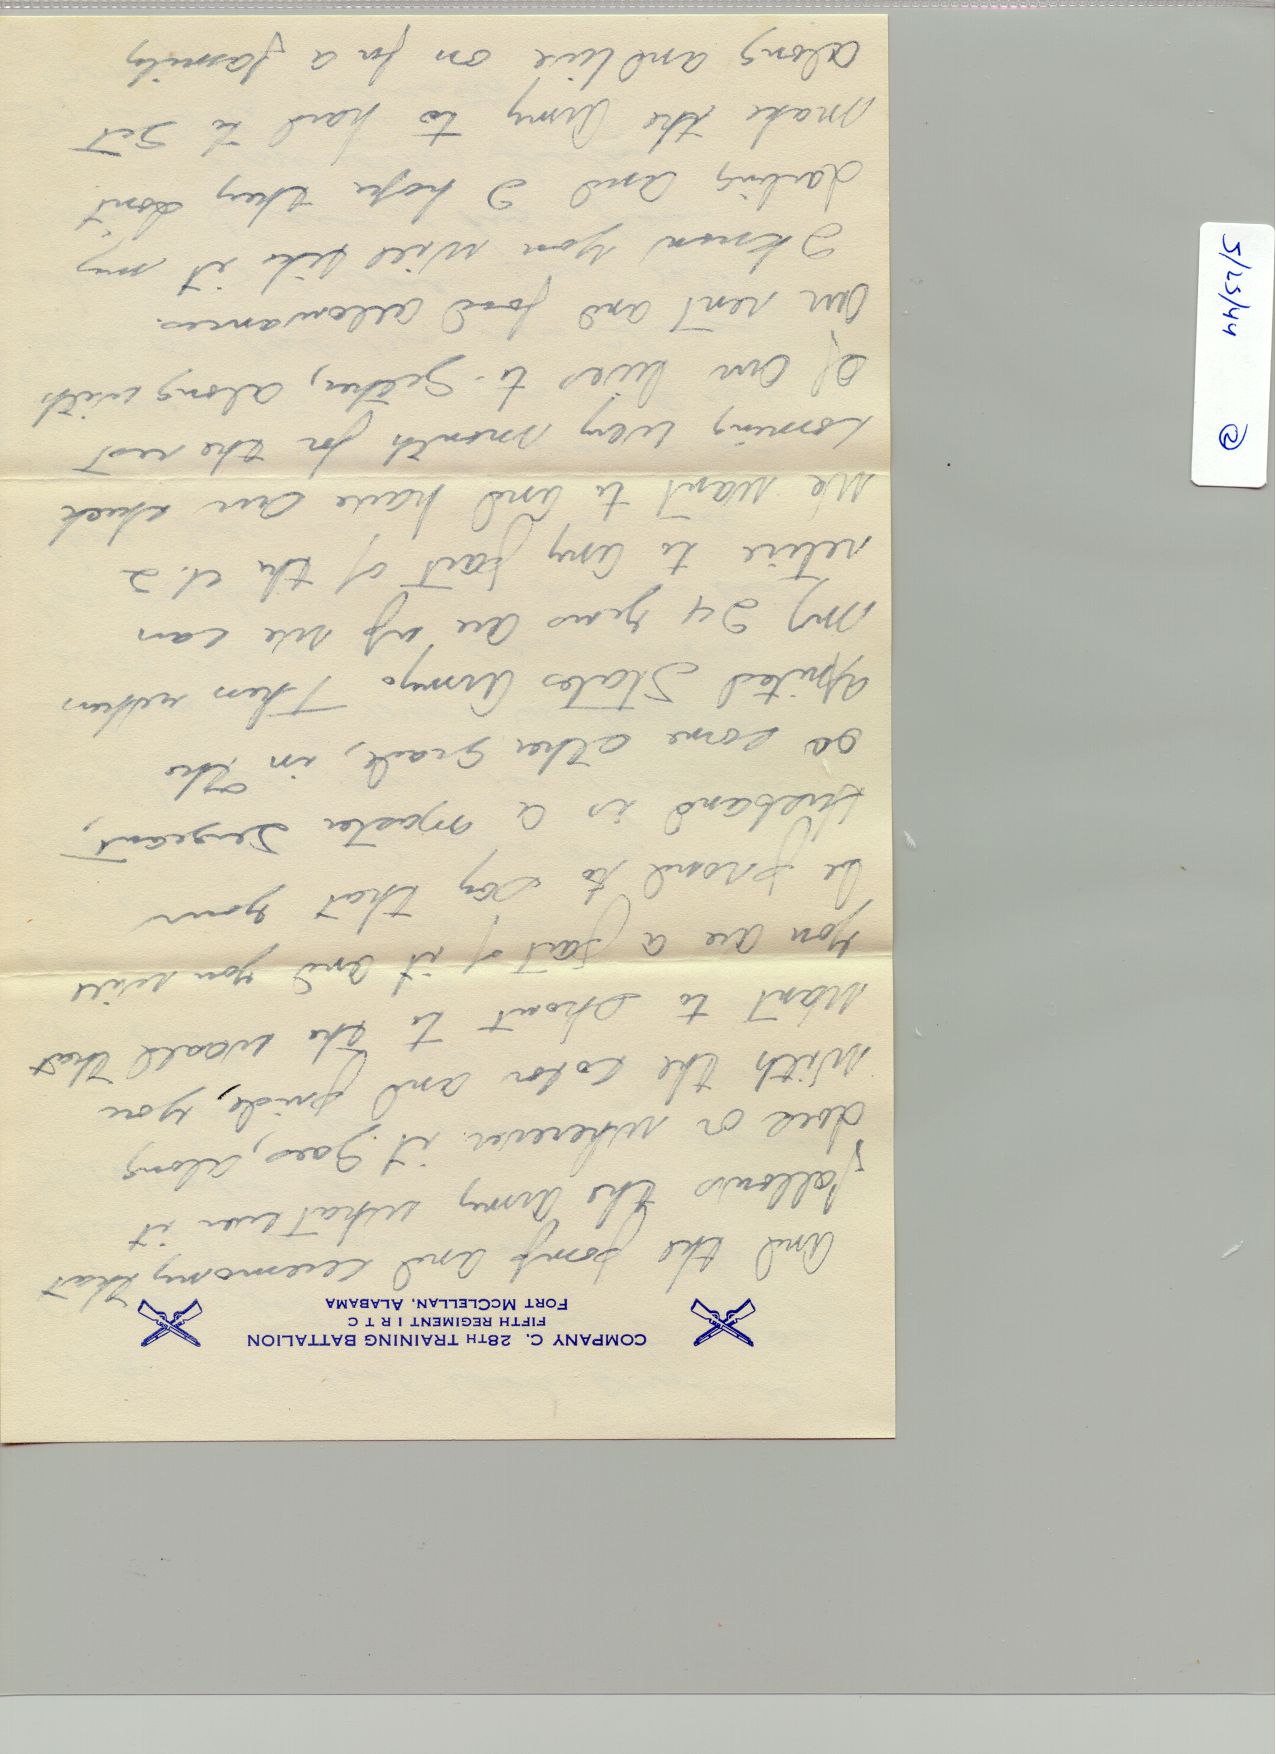 COMPANY C, 28TH TRAINING BATTALION
FIFTH REGIMENT I R T C
FORT MCCLELLAN, ALABAMA
and the pomp and ceremony that
follows the Army what ever it
does or wherever it goes, along
with the color and pride, you
want to shout to the world that
you are a part of it and you will
be proud to say that your
Husband is a Master Sergeant,
or some other grade, in the
United States Army. Then when
my 24 years are up we can
retire to any part of the U.S.
we want to and have our check
coming every month for the rest
of our lives to-gether, along with
our rent and food allowances.
I know you will like it my
darling and I hope they don't
make the Army to hard to get
along and live on for a family
5/23/44 2